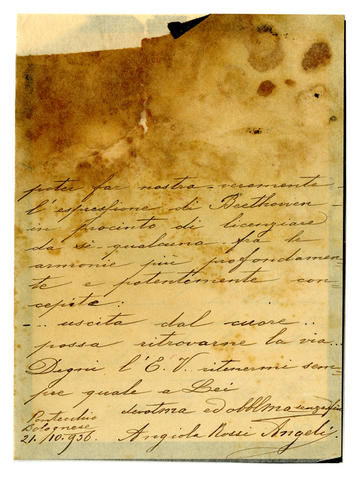 poter far nostra veramente
l'espressione di Beethoven
in procinto di licenziare
da sè qualcuna fra le
armonie più profondamen-
te e potentemente con-
cepite:
... uscita dal cuore ...
possa ritrovarne la via...
Degni l'E. V. ritenermi sem-
pre quale a Lei
devotma ed obblma senza fine
Pontecchio
Bolognese
21./10.936. Angiola Rossi Angeli